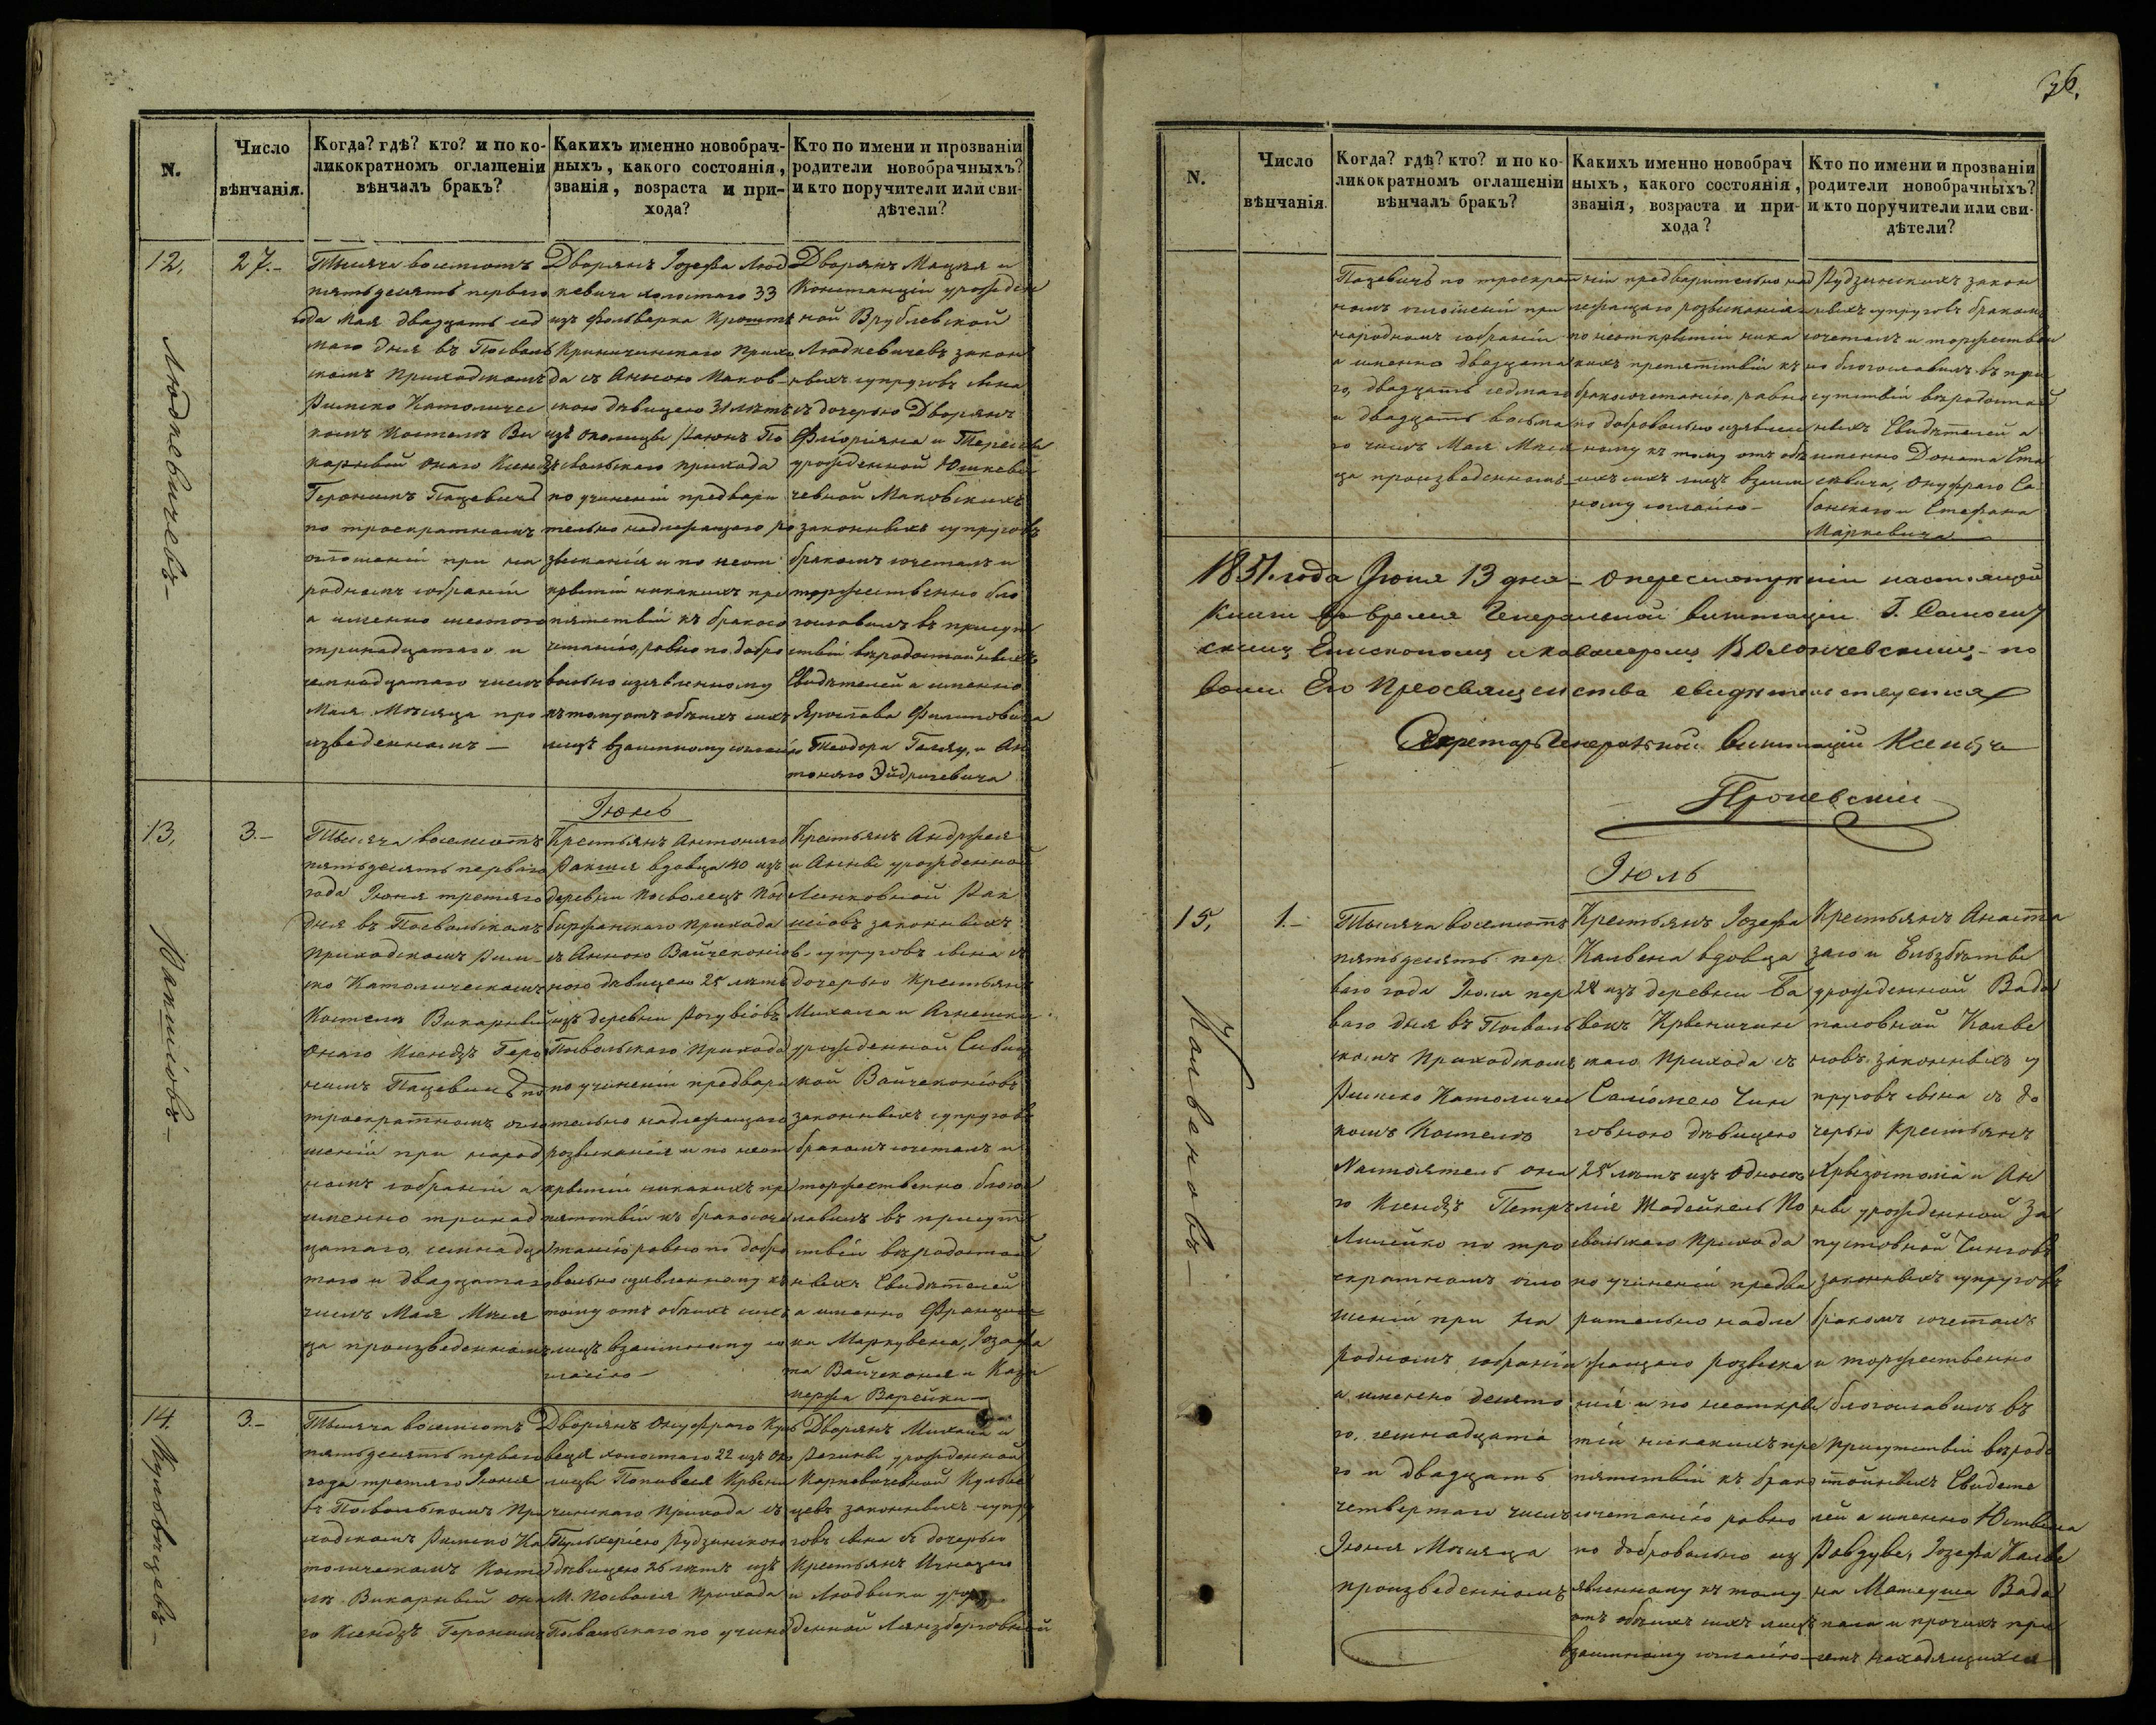 36.
N.
Число
вѣнчанія.
Когда? гдѣ? кто? и по ко-
ликократномъ оглашеніи
вѣнчалъ бракъ?
Какихъ именно новобрач-
ныхъ, какого состоянія,
званія, возраста и при-
хода?
Кто по имени и прозваніи
родители новобрачныхъ?
и кто поручители или сви-
дѣтели?
12.
27.-
Людкевичевъ-
Тысяча восемсотъ
пятьдесятъ перваго
года Мая двадцать сед
маго дня въ Посволь
скомъ Приходскомъ
Римско Католичес
комъ Костелѣ Ви
карный онаго Ксендзъ
Геронимъ Пацевичъ
по троекратномъ
оглошеніи при на
родномъ собраніи
а именно шестого
тринадцатаго и
чиселъ
Мая Мѣсяца про
изведенномъ —
Дворянъ Іозефа Люд
кевича холостаго 33
изъ фольварка
Криничинскаго Прихо
да съ Анною Маков-
скою дѣвицею 31 лѣтъ
изъ околицы По
свольскаго прихода
по учиненіи предвари
тельно надлежащаго ро
зысканія и по неот
крытіи никакихъ пре
пятствій къ бракосо
четанію, равно по добро
вольно изявленному
къ тому отъ обѣихъ сихъ
лицъ взаимному согласію
Дворянъ Мацея и
Констанціи урожден
ной Врублевской
Людкевичевъ закон
ныхъ супруговъ сына
съ дочерью Дворянъ
Флоріяна и Терезіи
урожденной Юшкеви
чевной Маковскихъ
законныхъ супруговъ
бракомъ сочеталъ и
торжественно бло
гословилъ въ присут
ствіи вѣродостойныхъ
Свидѣтелей а именно
Филиповича
Теодора и Ан
тоняго Эйдригевича
13,
3.-
Іюнь
Тысяча восемсотъ
пятьдесятъ перваго
года Іюня третяго
дня въ Посвольскомъ
Приходскомъ Рим-
ско Католическомъ
Костелѣ Викарный
онаго Ксендзъ Геро
нимъ Пацевичъ по
троекратномъ огло
шеніи при народ
номъ собраніи а
именно тринад
цатаго, семнадца
таго и двадцатаго
чиселъ Мая Мѣся
ца произведенномъ
Крестьянъ Антоняго
вдовца 40 изъ
деревни Посволецъ Под
биржанскаго Прихода
съ Анною Вайчеконіов-
ною дѣвицею 25 лѣтъ
изъ деревни Рогувіовъ
Посвольскаго Прихода
по учиненіи предвари
тельно надлежащаго
розысканія и по неот
крытіи никакихъ пре
пятствій къ бракосоче
танію равно по добро
вольно изявленному къ
тому отъ обѣихъ сихъ
лицъ взаимному со
гласію —
Крестьянъ Андржея
и Анны урожденной
Линковной Рак
шіовъ законныхъ
супруговъ сына съ
дочерью Крестьянъ
Михала и Агнешки
урожденной
Вайчеконіовъ
законныхъ супруговъ
бракомъ сочеталъ и
торжественно благос
ловилъ въ присут
ствіи вѣродостой
ныхъ Свидѣтелей
а именно Францишка
Маркувена, Іозафа
та Вайчеконя и Кази
мержа Варейки —
14.
3.-
Кульвѣцевъ-
Тысяча восемсотъ
пятьдесятъ перваго
года третяго Іюня
въ Посвольскомъ При
ходскомъ Римско Ка
толическомъ Косте
лѣ Викарный она
го Ксендзъ Геронимъ
Дворянъ Онуфраго Куль
веця холостаго 22 изъ око
лицы Крыни
чинскаго Прихода съ
Пульхеріею Рудзинскою
дѣвицею 26 лѣтъ изъ
М. Посволя Прихода
Посвольскаго по учине
Дворянъ Михаила и
Регины урожденной
Карневичевной Кульвѣ
цевъ законныхъ супру
говъ сына съ дочерью
Крестьянъ Игнацего
и Людвики урож
денной Лянзберговной
N.
Число
вѣнчанія.
Когда? гдѣ? кто? и по ко-
ликократномъ оглашеніи
вѣнчалъ бракъ?
Какихъ именно новобрач
ныхъ, какого состоянія,
званія, возраста и при-
хода?
Кто по имени и прозваніи
родители новобрачныхъ?
и кто поручители или сви-
дѣтели?
Пацевичъ по троекрат
номъ оглошеніи при
народномъ собраніи
а именно двадцата
го, двадцать седмаго
и двадцать восьма
го чиселъ Мая Мѣся
ца произведенномъ
ніи предварительно над
лежащаго розысканія
по неоткрытіи ника
кихъ препятствій къ
бракосочетанію, равно
по добровольно изявлен
ному къ тому отъ обѣ
ихъ сихъ лицъ взаим
ному согласію —
Рудзинскихъ закон
ныхъ супруговъ бракомъ
сочеталъ и торжествен
но благословилъ въ при
сутствіи вѣродостой
ныхъ Свидѣтелей а
именно Доната
Онуфраго
и Стефана
Маркевича
1851. года Іюня 13 дня — О пересмотрѣніи настоящей
книги во время Генеральной визитаціи
Епископомъ и кавалеромъ Волончевскимъ — по
волѣ Его Преосвященства свидѣтельствуется
Секретарь Генеральной визитаціи Ксендзъ
Іюль
15,
1.-
Кальвеновъ-
Тысяча восемсотъ
пятьдесятъ пер
ваго года Іюля пер
ваго дня въ Посволь
скомъ Приходскомъ
Римско Католичес
комъ Костелѣ
Настоятель она
го Ксендзъ Петръ
Лилейко по тро
екратномъ огло
шеніи при на
родномъ собраніи
а именно десято
го, семнадцата
го и двадцать
четвертаго чиселъ
Іюня Мѣсяца
произведенномъ
Крестьянъ Іозефа
Кальвена вдовца
28 изъ деревни Ба
вокъ Крыничин
скаго Прихода съ
Саломеею Чин
говною дѣвицею
25 лѣтъ изъ
По
свольскаго Прихода
по учиненіи предва
рительно надле
жащаго розыска
нія и по неоткры
тіи никакихъ пре
пятствій къ брако
сочетанію равно
по добровольно из
явленному къ тому
отъ обѣихъ сихъ лицъ
взаимному согласію —
Крестьянъ Анаста
заго и Ельзбѣты
урожденной Вада
паловной Кальве
новъ законныхъ су
пруговъ сына съ до
черью Крестьянъ
Хрызостома и Ан
ны урожденной За
пустовной Чинговъ
законныхъ супруговъ
бракомъ сочеталъ
и торжественно
благословилъ въ
присутствіи вѣродо
стойныхъ Свидете
лей а именно Юстина
Іозефа Кальве
на Матеуша Вада
пала и прочихъ при
семъ находящихся